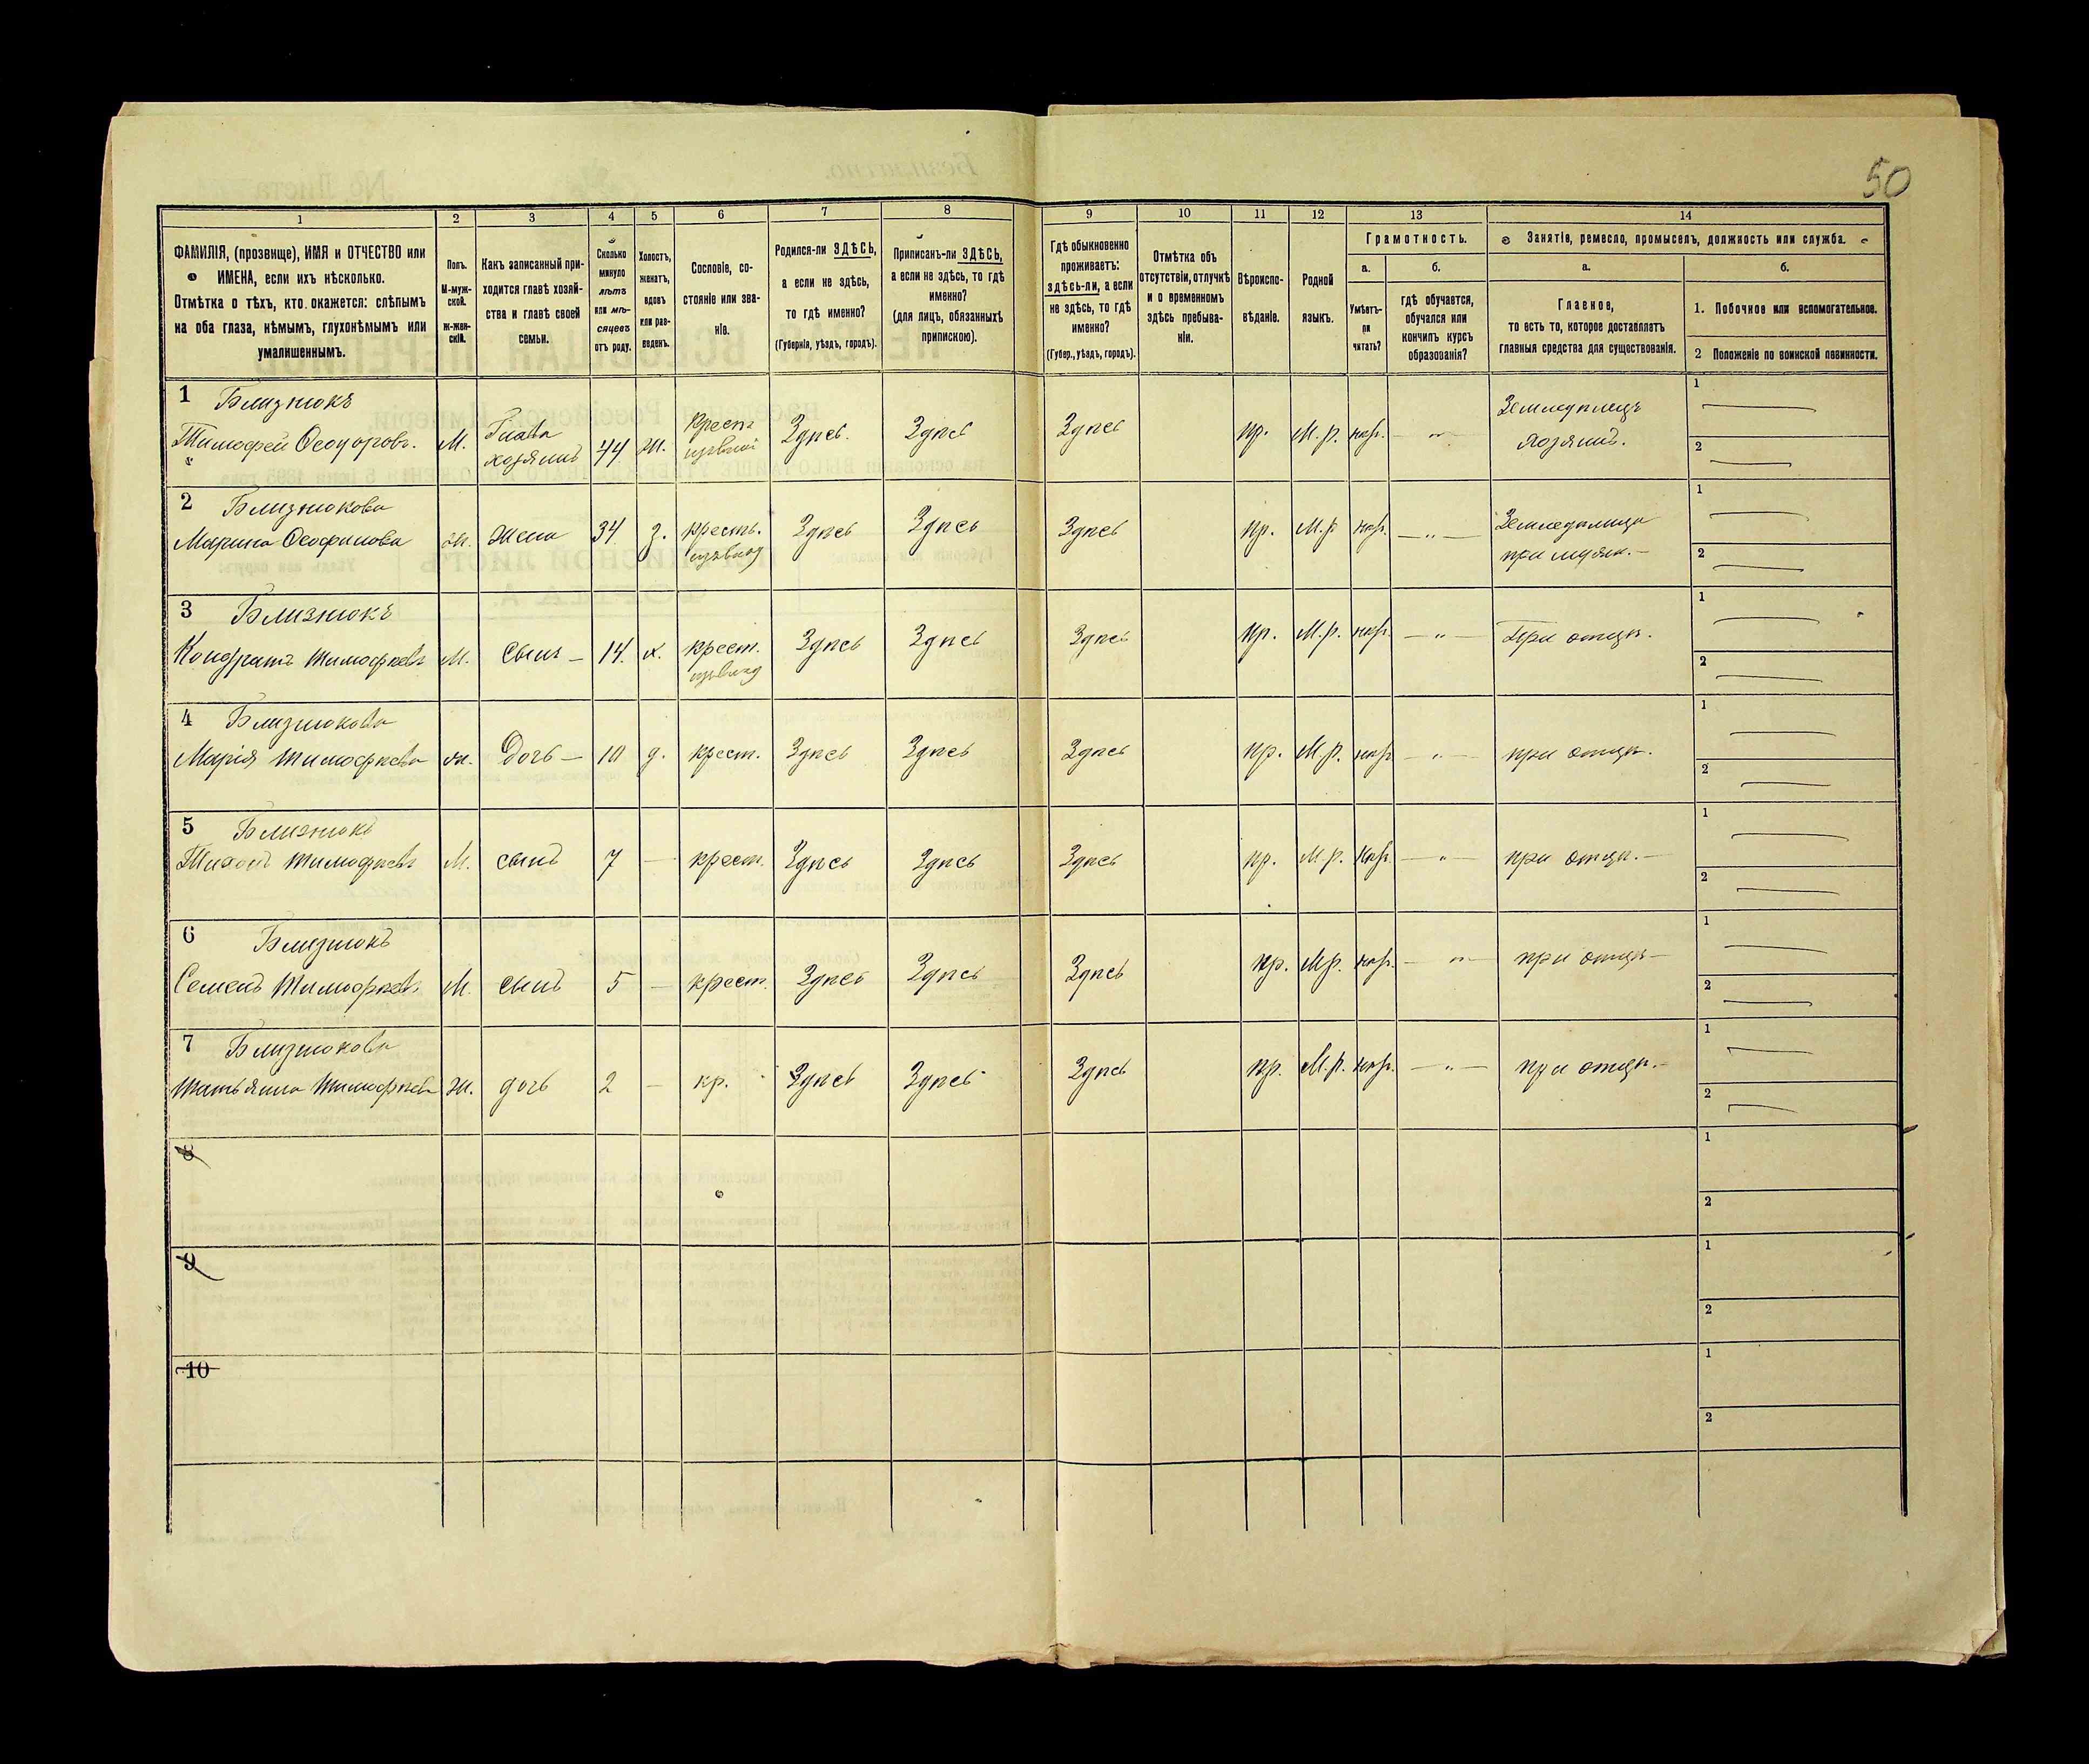 50
1 2 3 4 5 6 7 8 9 10 11 12 13 14
ФАМИЛІЯ, (прозвище), ИМЯ и ОТЧЕСТВО или
ИМЕНА, если ихъ нѣсколько.
Отмѣтка о тѣхъ, кто окажется: слѣпымъ
на оба глаза, нѣмымъ, глухонѣмымъ или
умалишеннымъ.
Полъ.
М-муж-
ской.
Ж-жен-
скій.
Какъ записанный при-
ходится главѣ хозяй-
ства и главѣ своей
семьи.
Сколько
минуло
лѣтъ
или мѣ-
сяцевъ
отъ роду.
Холостъ,
женатъ,
вдовъ
или раз-
веденъ.
Сословіе, со-
стояніе или зва-
ніе.
Родился-ли ЗДѢСЬ,
а если не здѣсь,
то гдѣ именно?
(Губернія, уѣздъ, городъ).
Приписанъ-ли ЗДѢСЬ,
а если не здѣсь, то гдѣ
именно?
(для лицъ, обязанныхъ
припискою).
Гдѣ обыкновенно
проживаетъ:
здѣсь-ли, а если
не здѣсь, то гдѣ
именно?
(Губер., уѣздъ, городъ).
Отмѣтка объ
отсутствіи, отлучкѣ
и о временномъ
здѣсь пребыва-
ніи.
Вѣроиспо-
вѣданіе.
Родной
языкъ.
Грамотность.
а.
Умѣетъ-
ли
читать?
б.
гдѣ обучается,
обучался или
кончилъ курсъ
образованія?
Занятіе, ремесло, промыселъ, должность или служба.
а.
Главное,
то есть то, которое доставляетъ
главныя средства для существованія.
б.
1. Побочное или вспомогательное.
2 Положеніе по воинской повинности.
1 Близнюкъ
Тимофей Ѳеодоровъ. М. Глава хозяинъ 44 Ж. крест. Здѣсь. Здѣсь Здѣсь пр. М.р. Земледѣлецъ хозяинъ. 1 2
2 Близнюкова
Марина Ж. жена 34 З. крестъ. Здѣсь Здѣсь Здѣсь пр. М.р. Земледѣлица при 1 2
3 Близнюкъ
Кондратъ Тимофѣевъ М. сынъ 14. х. крест. Здѣсь Здѣсь Здѣсь пр. М.р. При отцѣ. 1 2
4 Близнюкова
Марія Тимофѣева ж. Дочь 10 д. крест. Здѣсь Здѣсь Здѣсь пр. М.р. при отцѣ. 1 2
5 Близнюкъ
Тихонъ Тимофѣевъ М. сынъ 7 крест. Здѣсь Здѣсь Здѣсь пр. М.р. при отцѣ. 1 2
6 Близнюкъ
Семенъ Тимофѣевъ М. сынъ 5 крест. Здѣсь Здѣсь Здѣсь пр. М.р. при отцѣ 1 2
7 Близнюкова
Татьяна Тимофѣева Ж. дочь 2 кр. Здѣсь Здѣсь Здѣсь пр. М.р. при отцѣ. 1 2
8 1 2
9 1 2
10 1 2